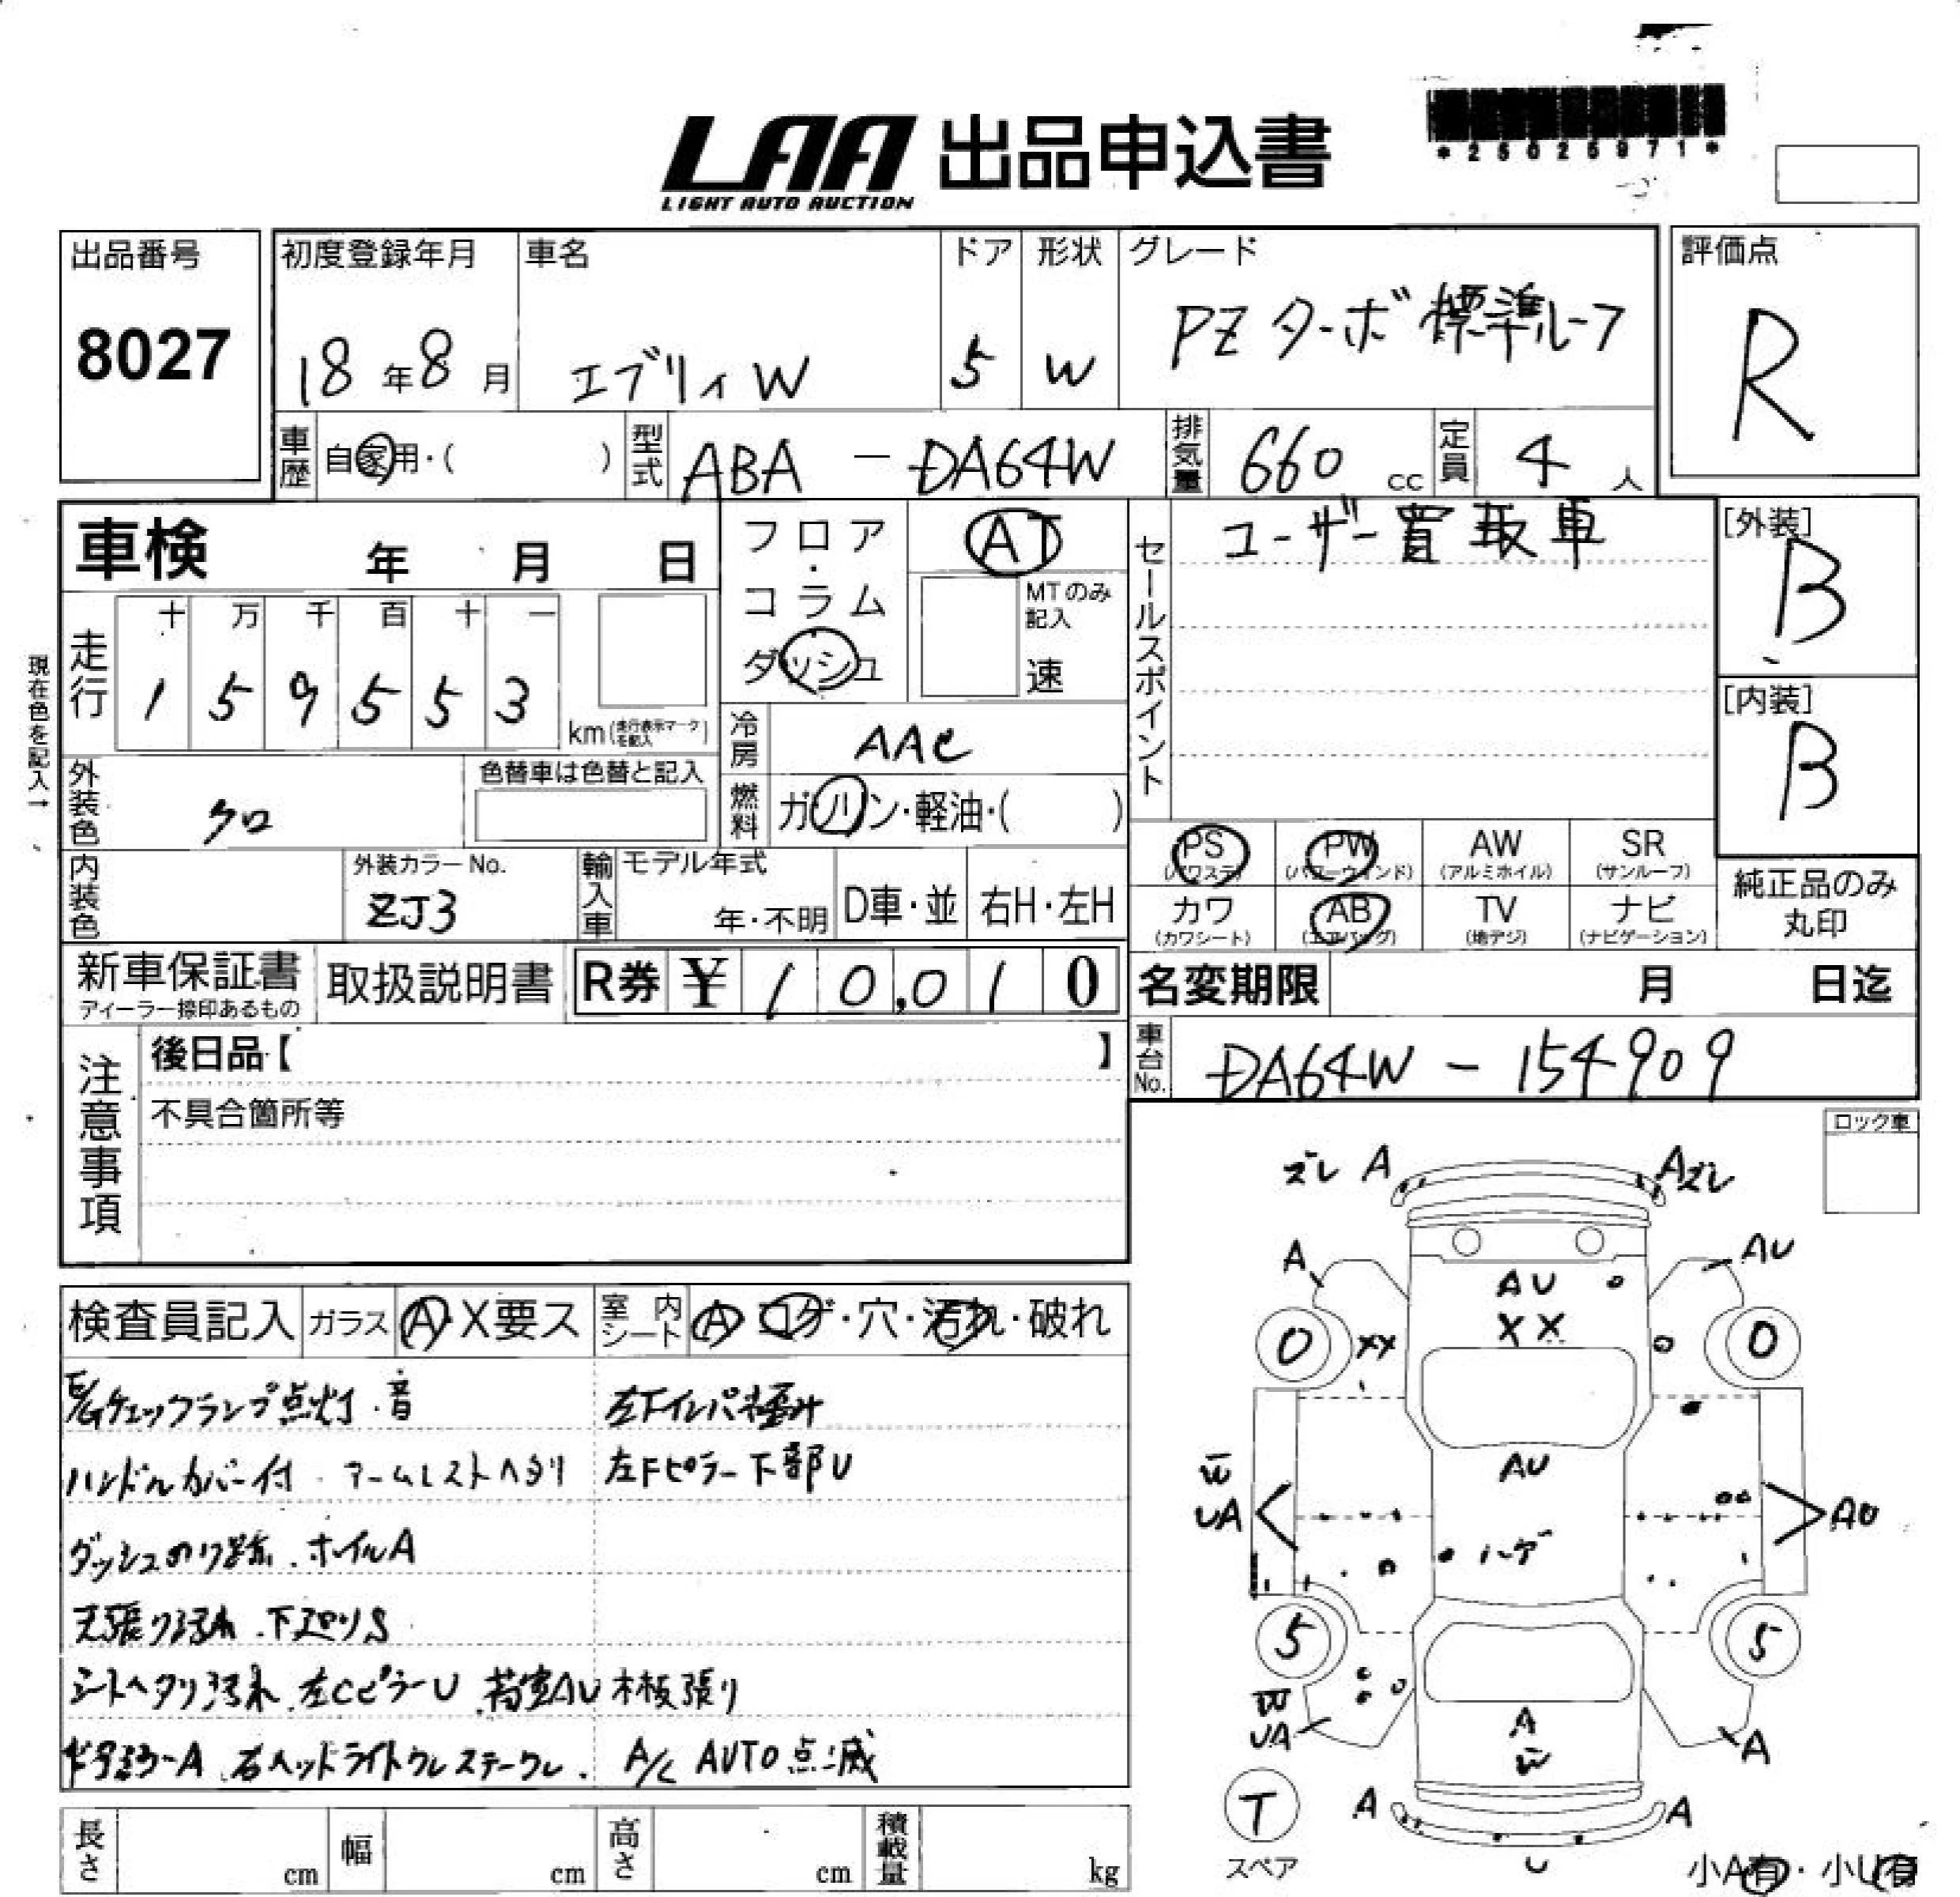 LAA 出品申込書
LIGHT AUTO AUCTION
*25025971*
出品番号
8027
初度登録年月
18年8月
車名
エブリィW
ドア
5
形状
W
グレード
PZターボ 標準ルーフ
評価点
R
車歴
自家用・( )
型式
ABA - DA64W
排気量
660 cc
定員
4 人
車検 年 月 日
フロア・コラム
ダッシュ
AT
MTのみ記入
速
セールスポイント
ユーザー買取車
[外装]
B
[内装]
B
現在色を記入→
走行
十 万 千 百 十 一
1 5 9 5 5 3
km(走行表示マークを記入)
冷房
AAC
外装色
クロ
色替車は色替と記入
燃料
ガソリン・軽油・( )
PS (パワステ)
PW (パワーウィンド)
AW (アルミホイル)
SR (サンルーフ)
カワ (カワシート)
AB (エアバッグ)
TV (地デジ)
ナビ (ナビゲーション)
純正品のみ丸印
内装色
外装カラーNo.
ZJ3
輸入車
モデル年式
年・不明
D車・並
右H・左H
新車保証書
ディーラー捺印あるもの
取扱説明書
R券 ¥ 10,010
名変期限 月 日迄
車台No.
DA64W - 154909
注意事項
後日品【 】
不具合箇所等
ロック車
検査員記入
ガラス
A X要ス
室内シート
A コゲ・穴・汚れ・破れ
E/Gチェックランプ点灯.音
左Fインパネ歪み
ハンドルカバー付 アームレストヘタリ
左Fピラー下部U
ダッシュのり跡.ホイルA
天張り汚れ.下廻りS
シートヘタリ汚れ.左CピラーU.荷室AU木板張り
ドアミラーA.右ヘッドライトウレステークレ.
A/C AUTO点滅
長さ cm
幅 cm
高さ cm
積載量 kg
ズレ A
A ズレ
A
AU
AU
XX
0
XX
0
AU
W
UA
AU
ハゲ
5
5
W
UA
A
W
A
T
スペア
A
A
U
小A有・小U有